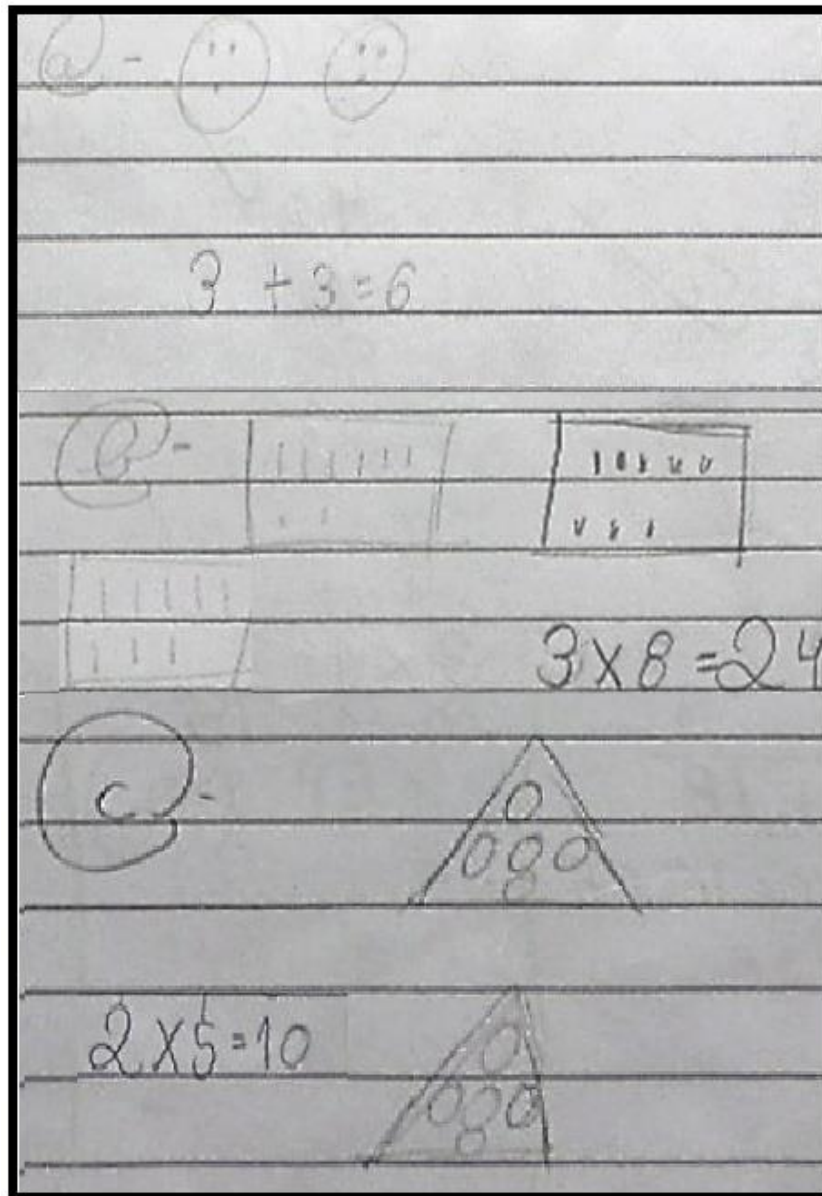 a -
3 + 3 = 6
b -
3 X 8 = 24
c -
2 X 5 = 10